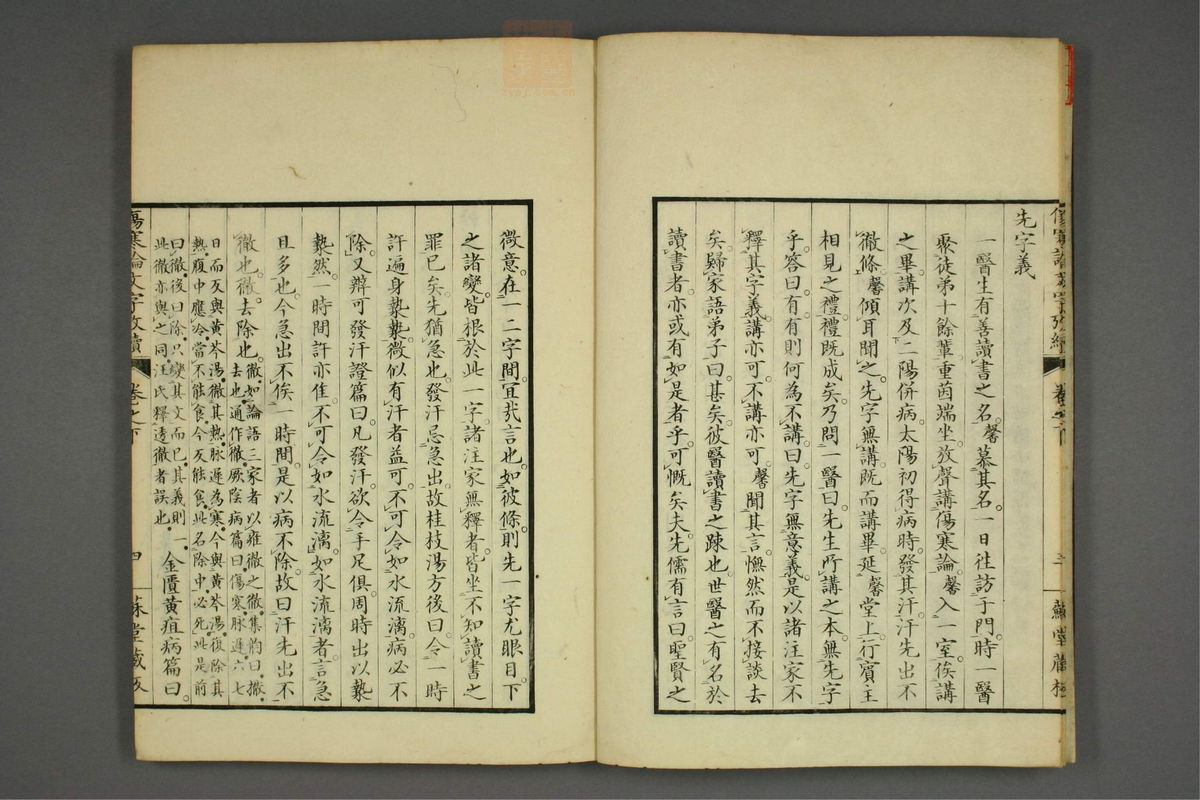 先字義
一醫生有善讀書之名。馨慕其名。一日往訪于門。時一醫
聚徒弟十餘輩。重茵端坐。放聲講傷寒論。馨入一室。俟講
之畢。講次及二陽併病。太陽初得病時。發其汗。汗先出不
徹條。馨傾耳聞之。先字無講。既而講畢。延馨堂上。行賓主
相見之禮。禮既成矣。乃問一醫曰。先生所講之本。無先字
乎。答曰。有。有則何為不講。曰。先字無意義。是以諸注家不
釋其字義。講亦可。不講亦可。馨聞其言。憮然而不接談。去
矣。歸家語弟子曰。甚矣。彼醫讀書之踈也。世醫之有名於
讀書者。亦或有如是者乎。可慨矣夫。先儒有言曰。聖賢之
微意。在一二字間。宜哉言也。如彼條。則先一字尤眼目。下
之諸變。皆根於此一字。諸注家無釋者。皆坐不知讀書之
罪已矣。先猶急也。發汗忌急出。故桂枝湯方後曰。令一時
許遍身漐漐。微似有汗者益可。不可令如水流漓。病必不
除。又辨可發汗證篇曰。凡發汗。欲令手足俱周。時出以漐
漐然。一時間許亦佳。不可令如水流漓。如水流漓者。言急
且多也。今急出不俟一時間。是以病不除。故曰汗先出不
徹也。徹。去除也。徹。如論語三家者以雍徹之徹。集韵曰。撤。
去也。通作徹。厥陰病篇曰。傷寒。脉遲。六七
日。而反與黃芩湯徹其熱。脉遲為寒。今與黃芩湯。復除其
熱。腹中應冷。當不能食。今反能食。此名除中。必死。此是前
曰徹。後曰除。只變其文而已。其義則一。金匱黃疸病篇曰。
此徹亦與之同。汪氏釋透徹者誤也。
傷寒論文字攷續
卷之下
四